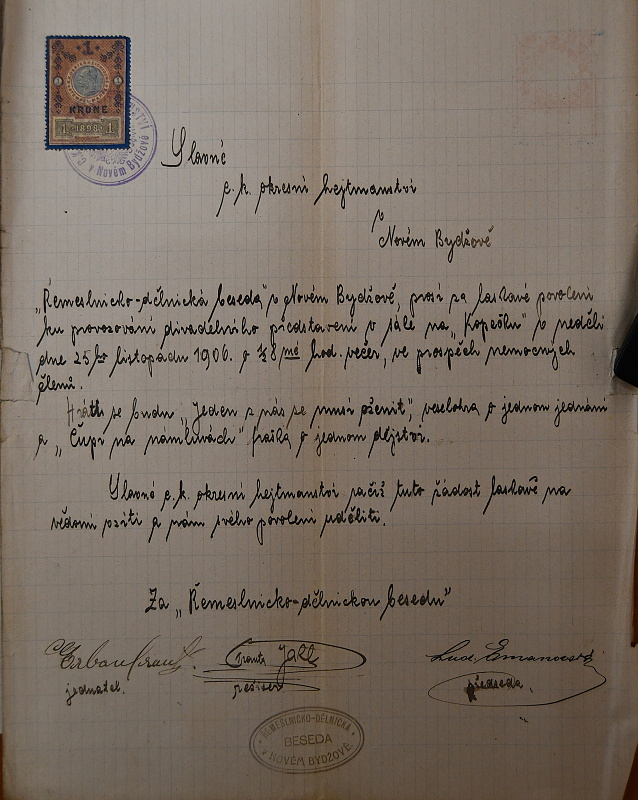 1
KRONE
1 1898 1
v Novém Bydžově
Slavné
c. k. okresní hejtmanství
v
Novém Bydžově
„Řemeslnicko-dělnická beseda" v Novém Bydžově, prosí za laskavé povolení
ku provozování divadelního představení v sále na „Kopečku" v neděli
dne 25ho listopadu 1906. o ½8 mé hod. večer, ve prospěch nemocných
členů.
Hráti se budou „Jeden z nás se musí oženit", veselohra o jednom jednání
a „Čupr na námluvách" fraška o jednom dějství.
Slavné c. k. okresní hejtmanství račiž tuto žádost laskavě na
vědomí vzíti a nám svého povolení uděliti.
Za „Řemeslnicko-dělnickou besedu"
Franta
jednatel. režisér předseda.
ŘEMESLNICKO-DĚLNICKÁ
BESEDA
V NOVÉM BYDŽOVĚ